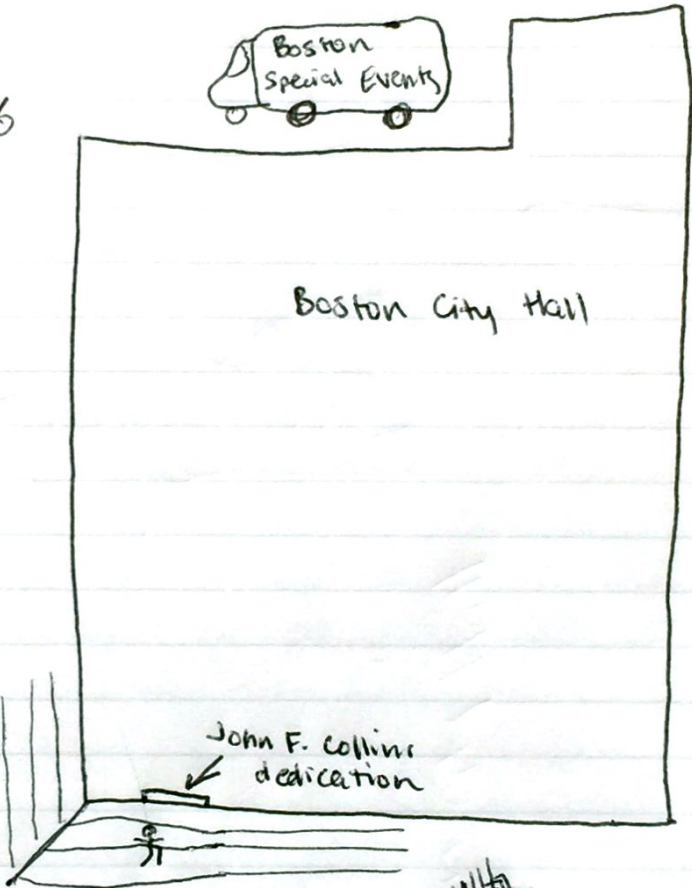 Boston
Special Events
Boston City Hall
John F. Collins
dedication